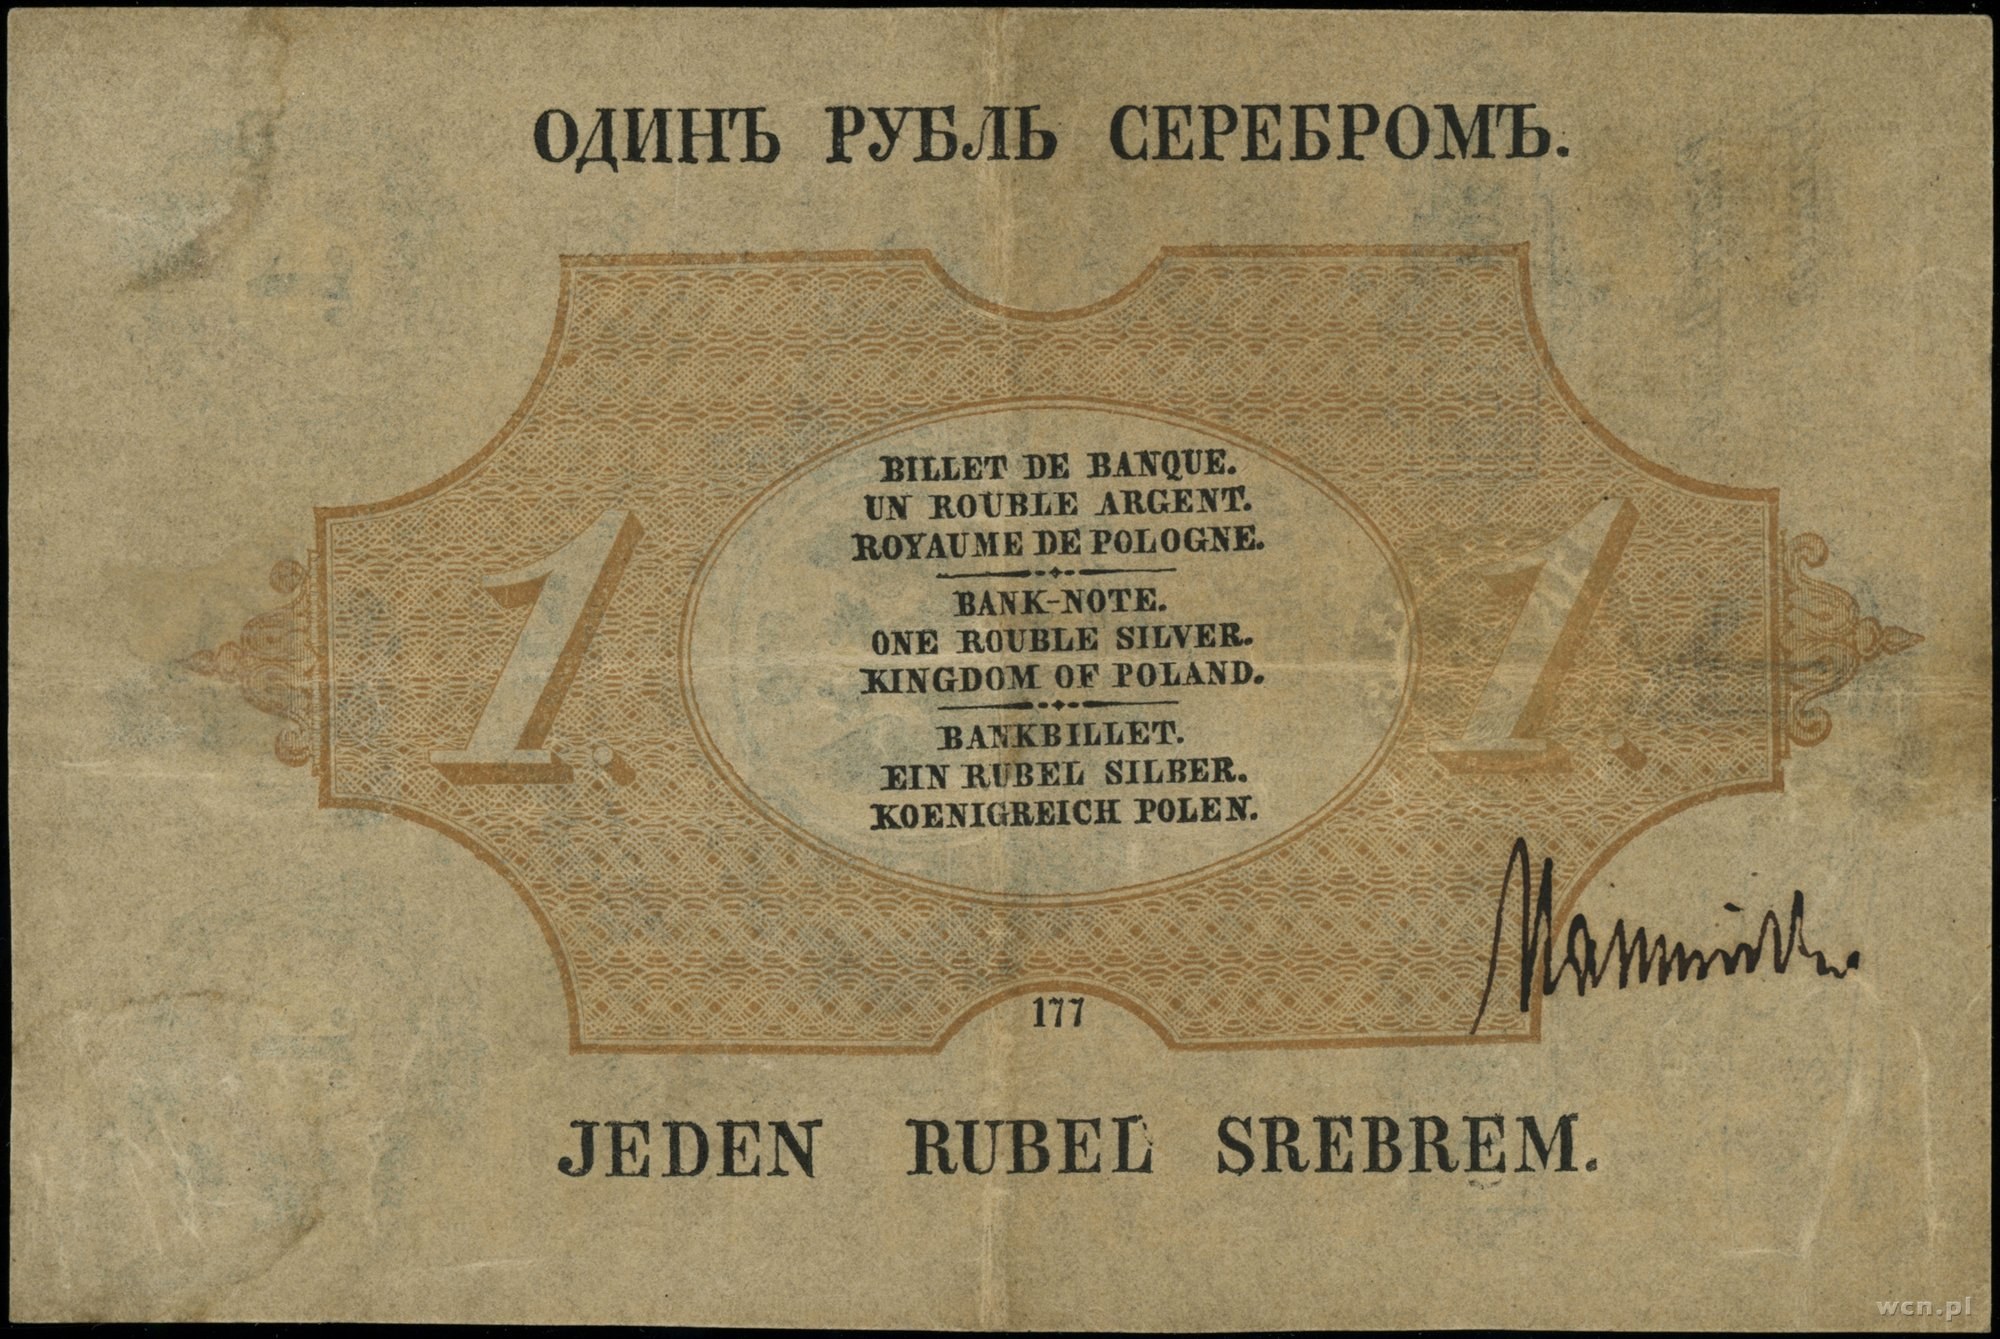 ОДИНЪ РУБЛЬ СЕРЕБРОМЪ.
BILLET DE BANQUE.
UN ROUBLE ARGENT.
ROYAUME DE POLOGNE.
BANK-NOTE.
ONE ROUBLE SILVER.
KINGDOM OF POLAND.
BANKBILLET.
EIN RUBEL SILBER.
KOENIGREICH POLEN.
1.
1.
177
JEDEN RUBEL SREBREM.
wcn.pl